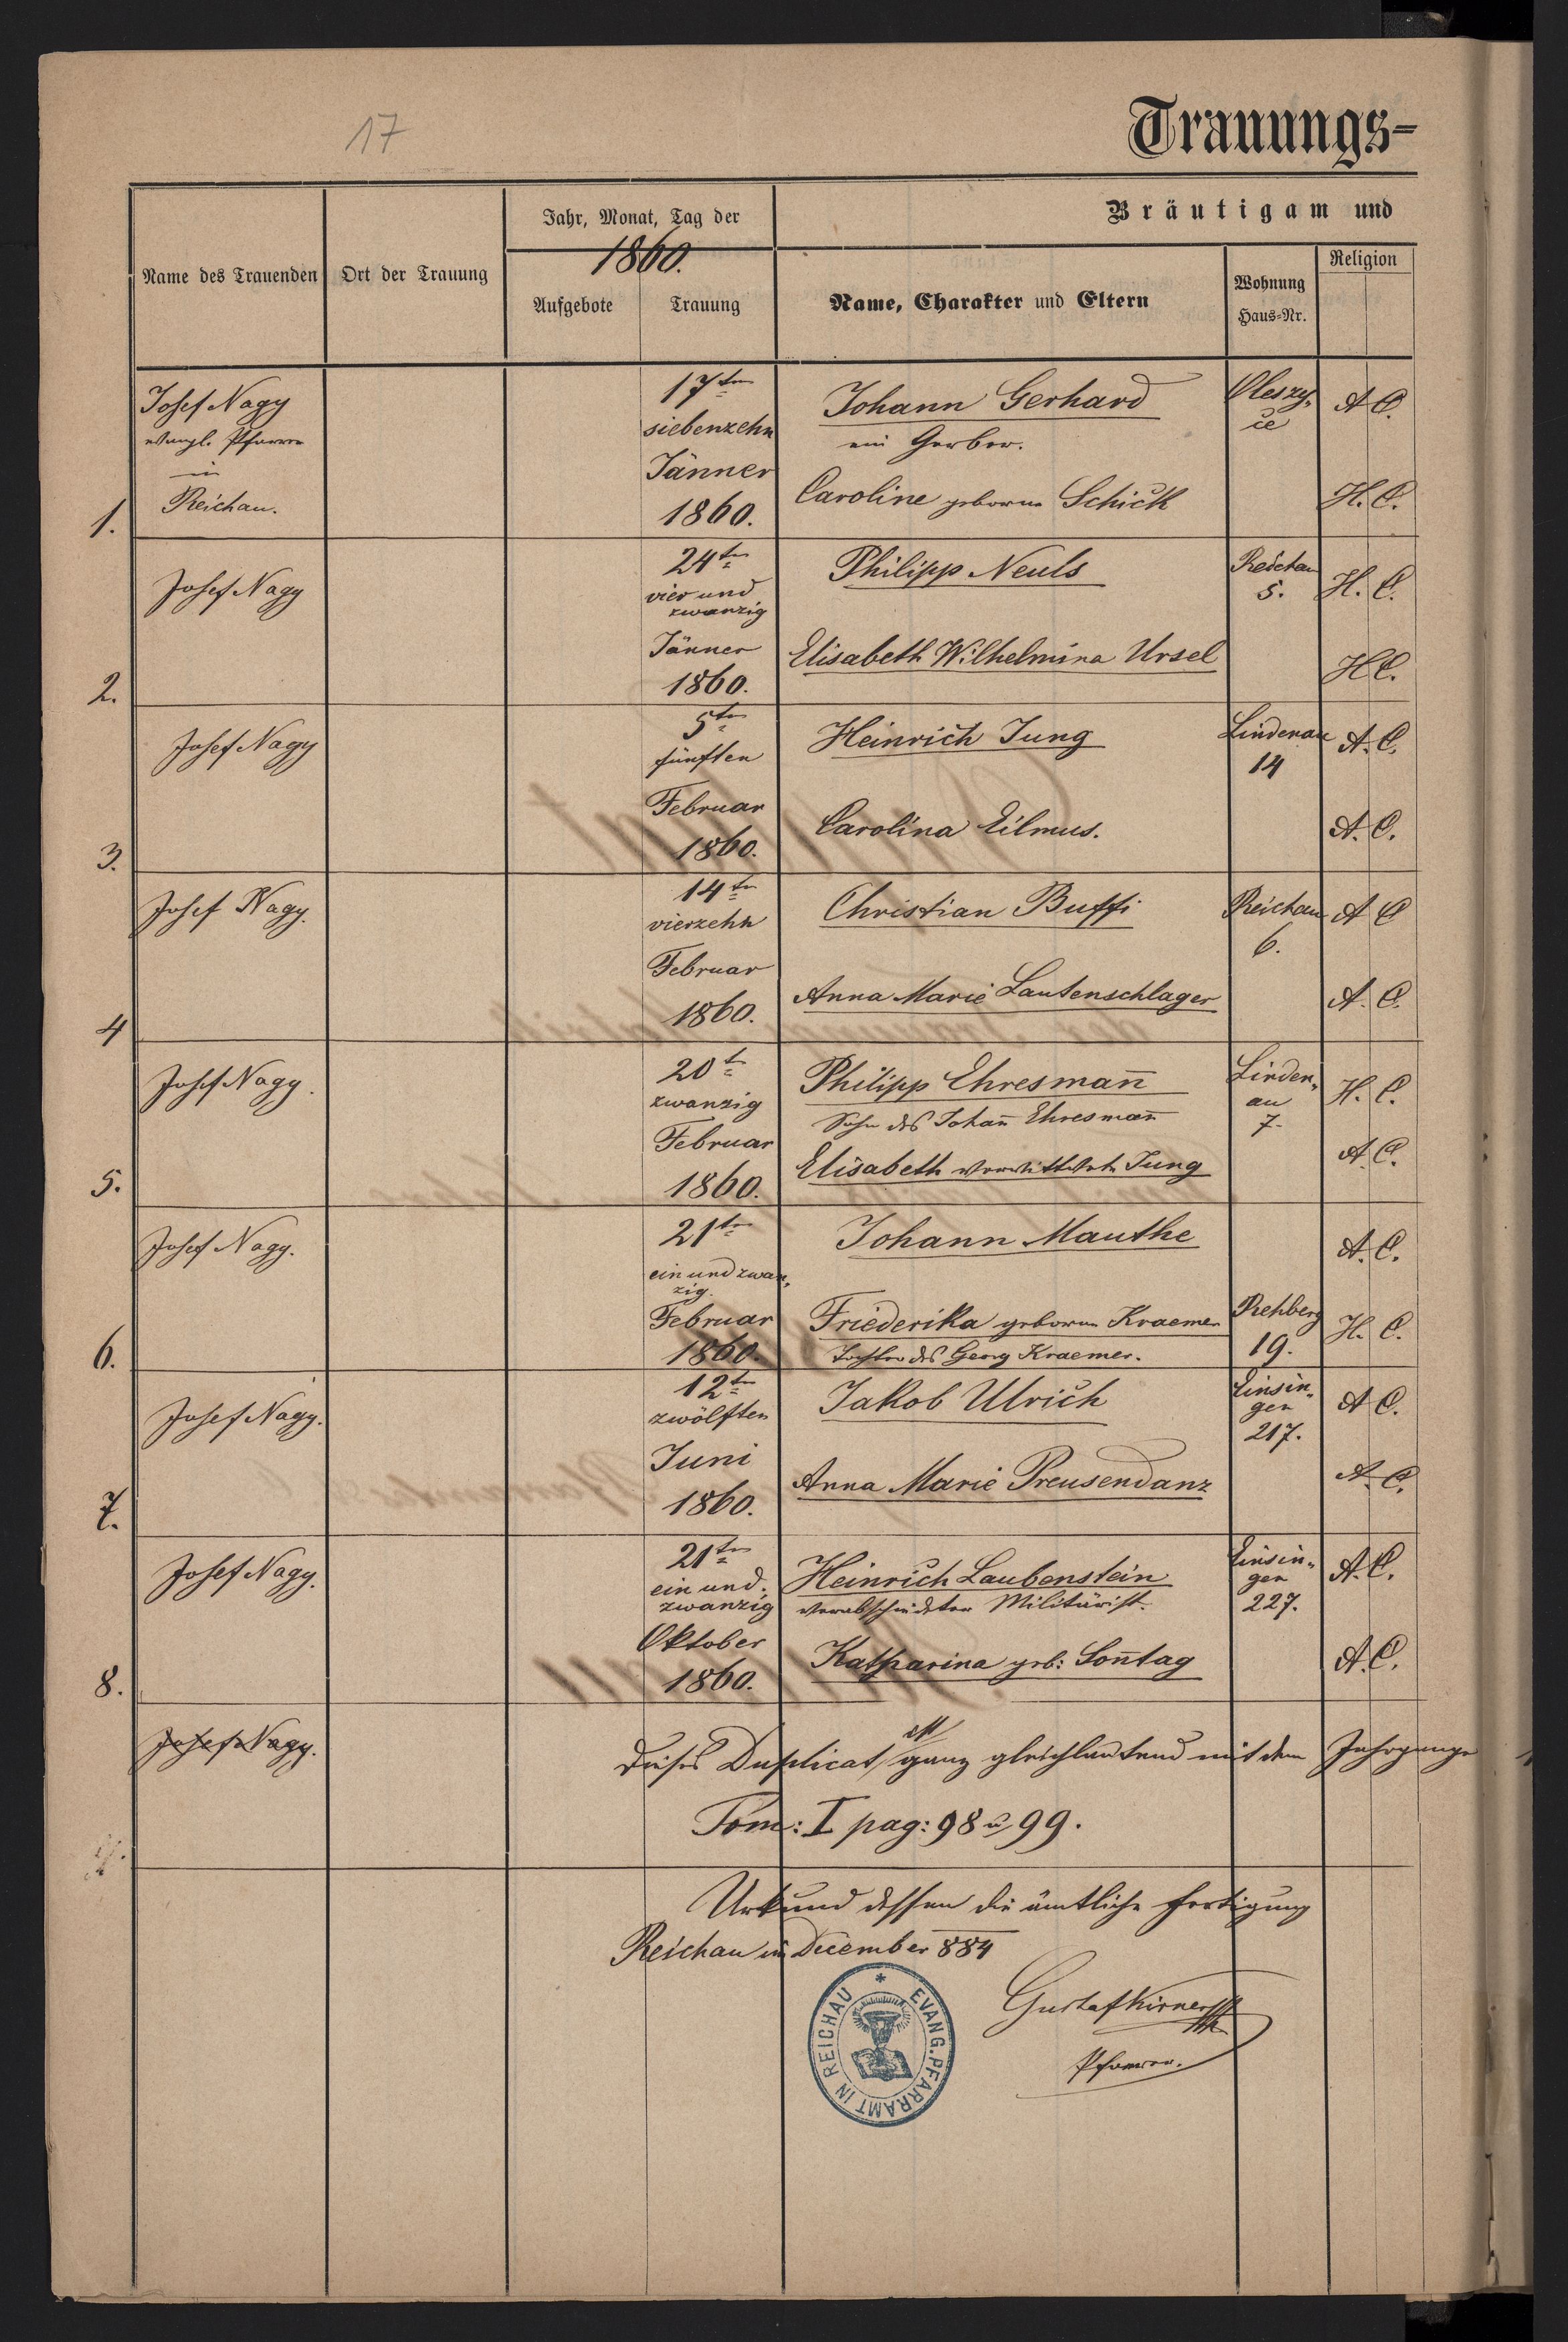 17
Trauungs-
Bräutigam und
Jahr, Monat, Tag der
1860.
Name des Trauenden
Ort der Trauung
Aufgebote
Trauung
Name, Charakter und Eltern
Wohnung
Haus-Nr.
Religion
1.
Josef Nagy
evangl. Pfarrer
in
Reichau.
17ten
siebenzehn
Jänner
1860.
Johann Gerhard
ein Gerber.
Caroline geborne Schick
Oleszy„
ce
A. C.
H. C.
2.
Josef Nagy
24ten
vier und
zwanzig
Jänner
1860.
Philipp Neuls
Elisabeth Wilhelmina Ursel
Reichau
5.
H. C.
H C.
3.
Josef Nagy
5ten
fünften
Februar
1860.
Heinrich Jung
Carolina Eilmus.
Lindenau
14
A. C.
A. C.
4
Josef Nagy.
14ten
vierzehn
Februar
1860.
Christian Buffi
Anna Marie Lautenschlager
Reichau
6.
A C
A. C.
5.
Josef Nagy.
20t
zwanzig
Februar
1860.
Philipp Ehresman̄
Sohn des Johan̄ Ehresman̄
Elisabeth verwittwete Jung
Linden„
au
7.
H. C.
A. C.
6.
Josef Nagy.
21ten
ein und zwan„
zig.
Februar
1860.
Johann Mauthe
Friederika geborne Kraemer
Tochter des Georg Kraemer.
Rehberg
19.
A. C.
H. C.
7.
Josef Nagy.
12ten
zwölften
Juni
1860.
Jakob Ulrich
Anna Marie Preusendanz
Einsin„
gen
217.
A C.
A. C.
8.
Josef Nagy.
21ten
ein und
zwanzig
Oktober
1860.
Heinrich Laubenstein
verabschiedeter Militärist.
Katharina geb: Son̄tag
Einsin„
gen
227.
A. C.
A. C.
Josef Nagy.
Dieses Duplicat ist ganz gleichlautend mit dem Jahrgange
Tom: I pag: 98 u 99.
Urkund dessen die ämtliche Fertigung
Reichau im December 884
Gustaf Kirner
Pfarrer.
EVANG. PFARRAMT IN REICHAU